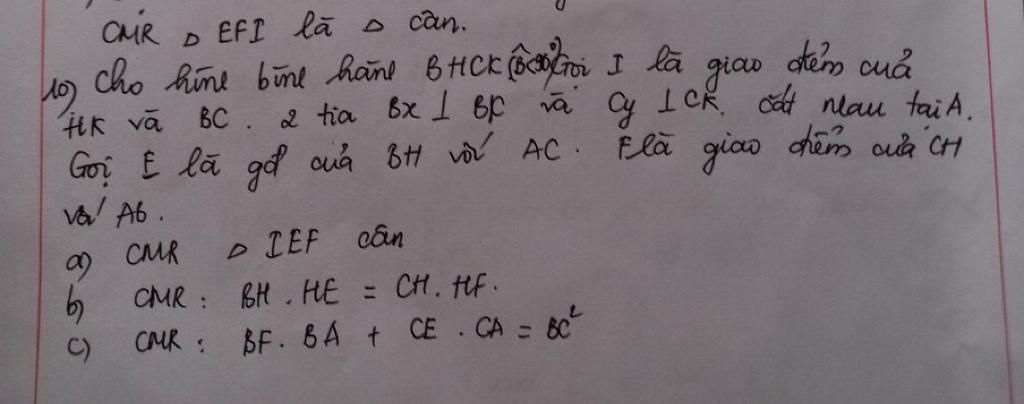 CMR △ EFI là △ cân.
10) Cho hình bình hành BHCK (B̂<90°) Gọi I là giao điểm của
HK và BC. 2 tia Bx ⊥ BK và Cy ⊥ CK. cắt nhau tại A.
Gọi E là gđ của BH với AC. F là giao điểm của CH
với AB.
a) CMR △ IEF cân
b) CMR : BH . HE = CH . HF.
c) CMR : BF . BA + CE . CA = BC²